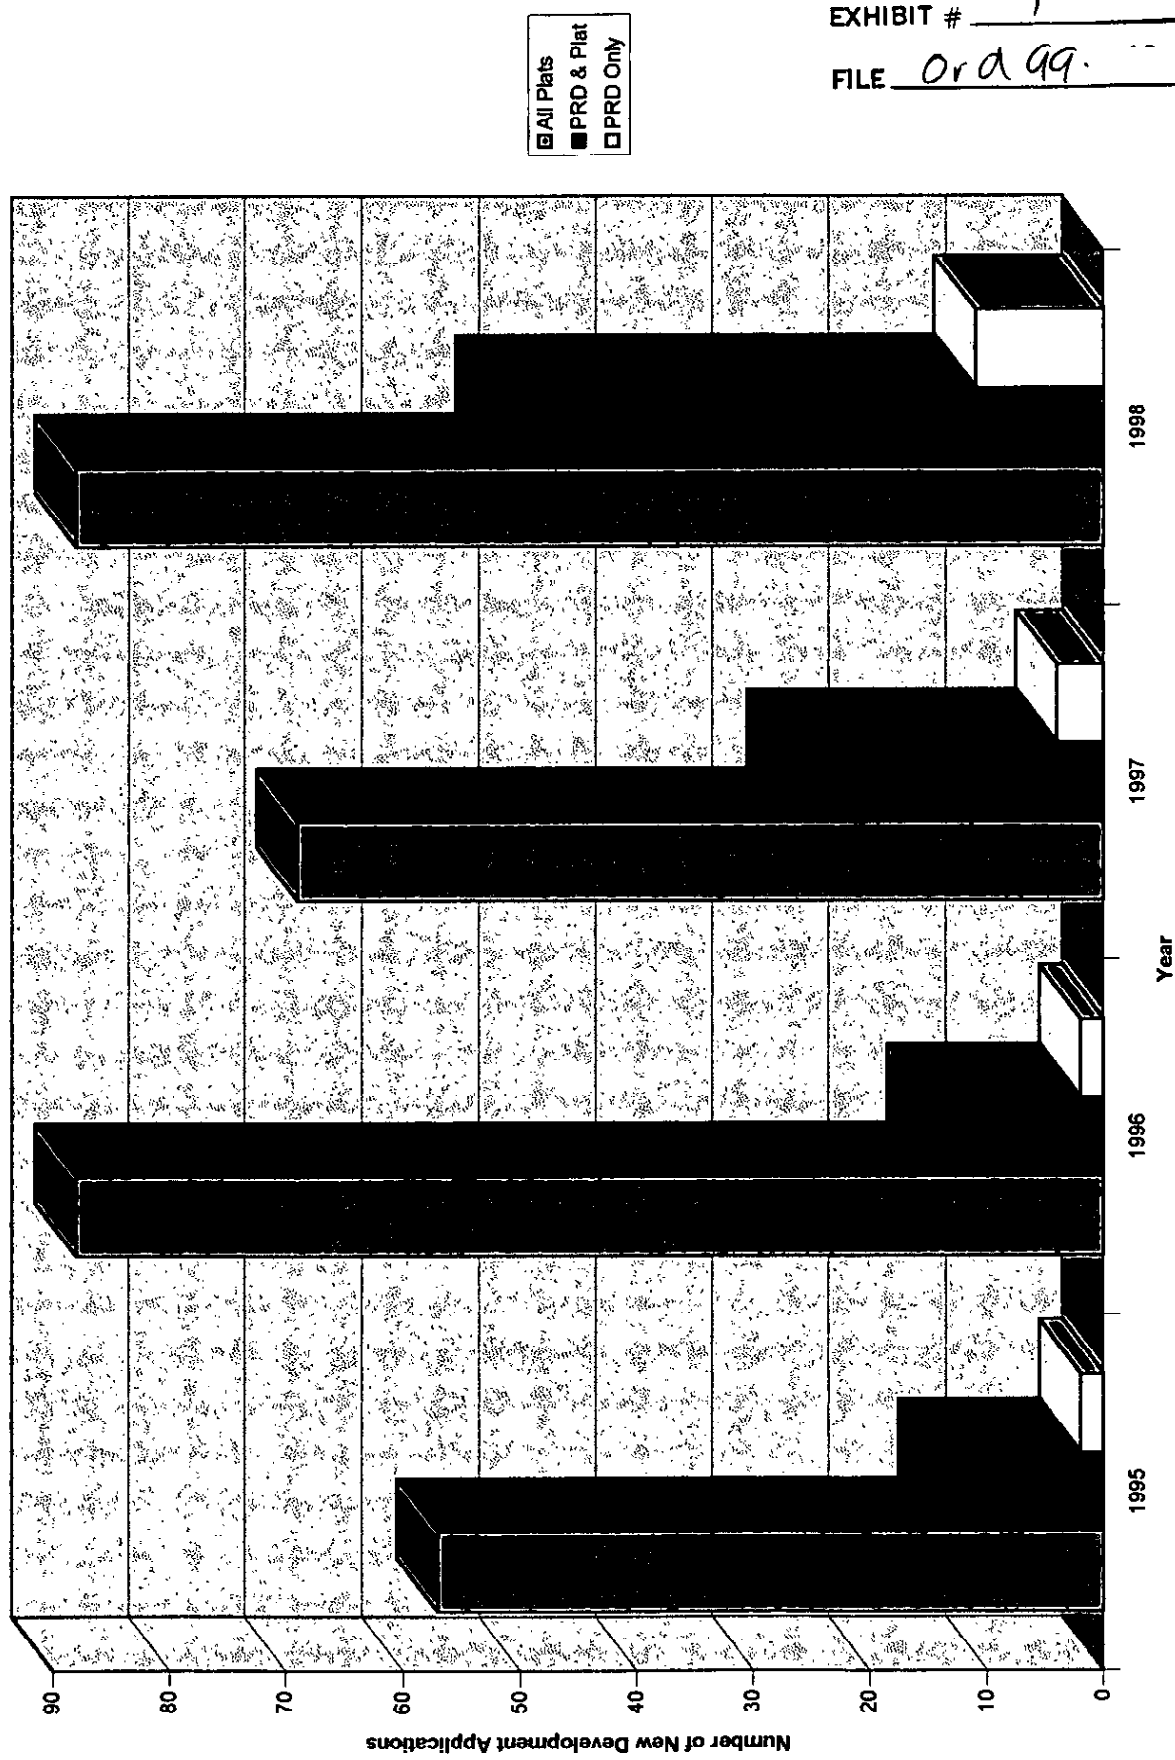 EXHIBIT #
FILE Ord 99.
All Plats
PRD & Plat
PRD Only
Number of New Development Applications
90
80
70
60
50
40
30
20
10
0
1995
1996
1997
1998
Year